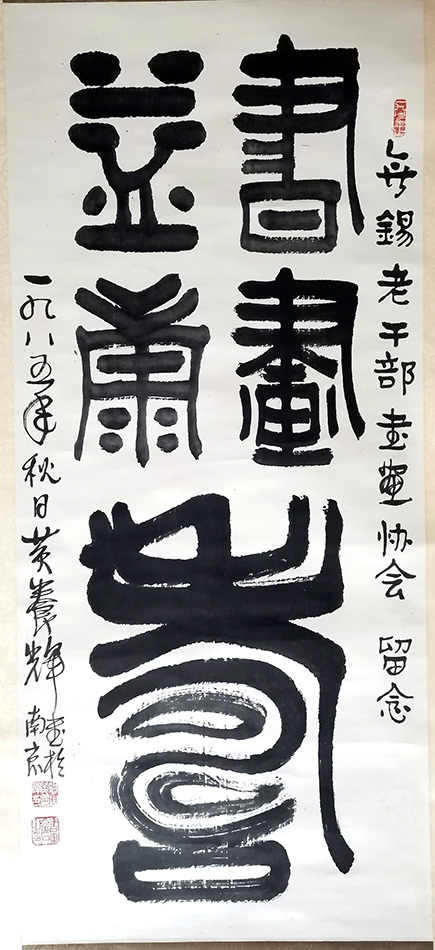 無錫老干部書畫协会 留念
書畫
益康
壽
一九八五年秋日黄養輝書於
南京